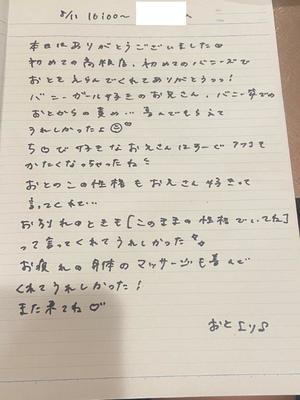 5/11 16:00〜
本日はありがとうございました♡
初めての高松店、初めてのバニーズで
おとをえらんでくれてありがとうっっ!
バニーガール好きのお兄さん、バニー姿での
おとからの責め… 喜んでもらえて
うれしかったよ
ち♡び好きなお兄さんは
かたくなっちゃったね
おとのこの性格もお兄さん好きって
言ってくれて…
お別れのときも[このままの性格でいてね]
って言ってくれてうれしかった
お疲れの身体のマッサージも喜んで
くれてうれしかった!
また来てね♡
おとより♪